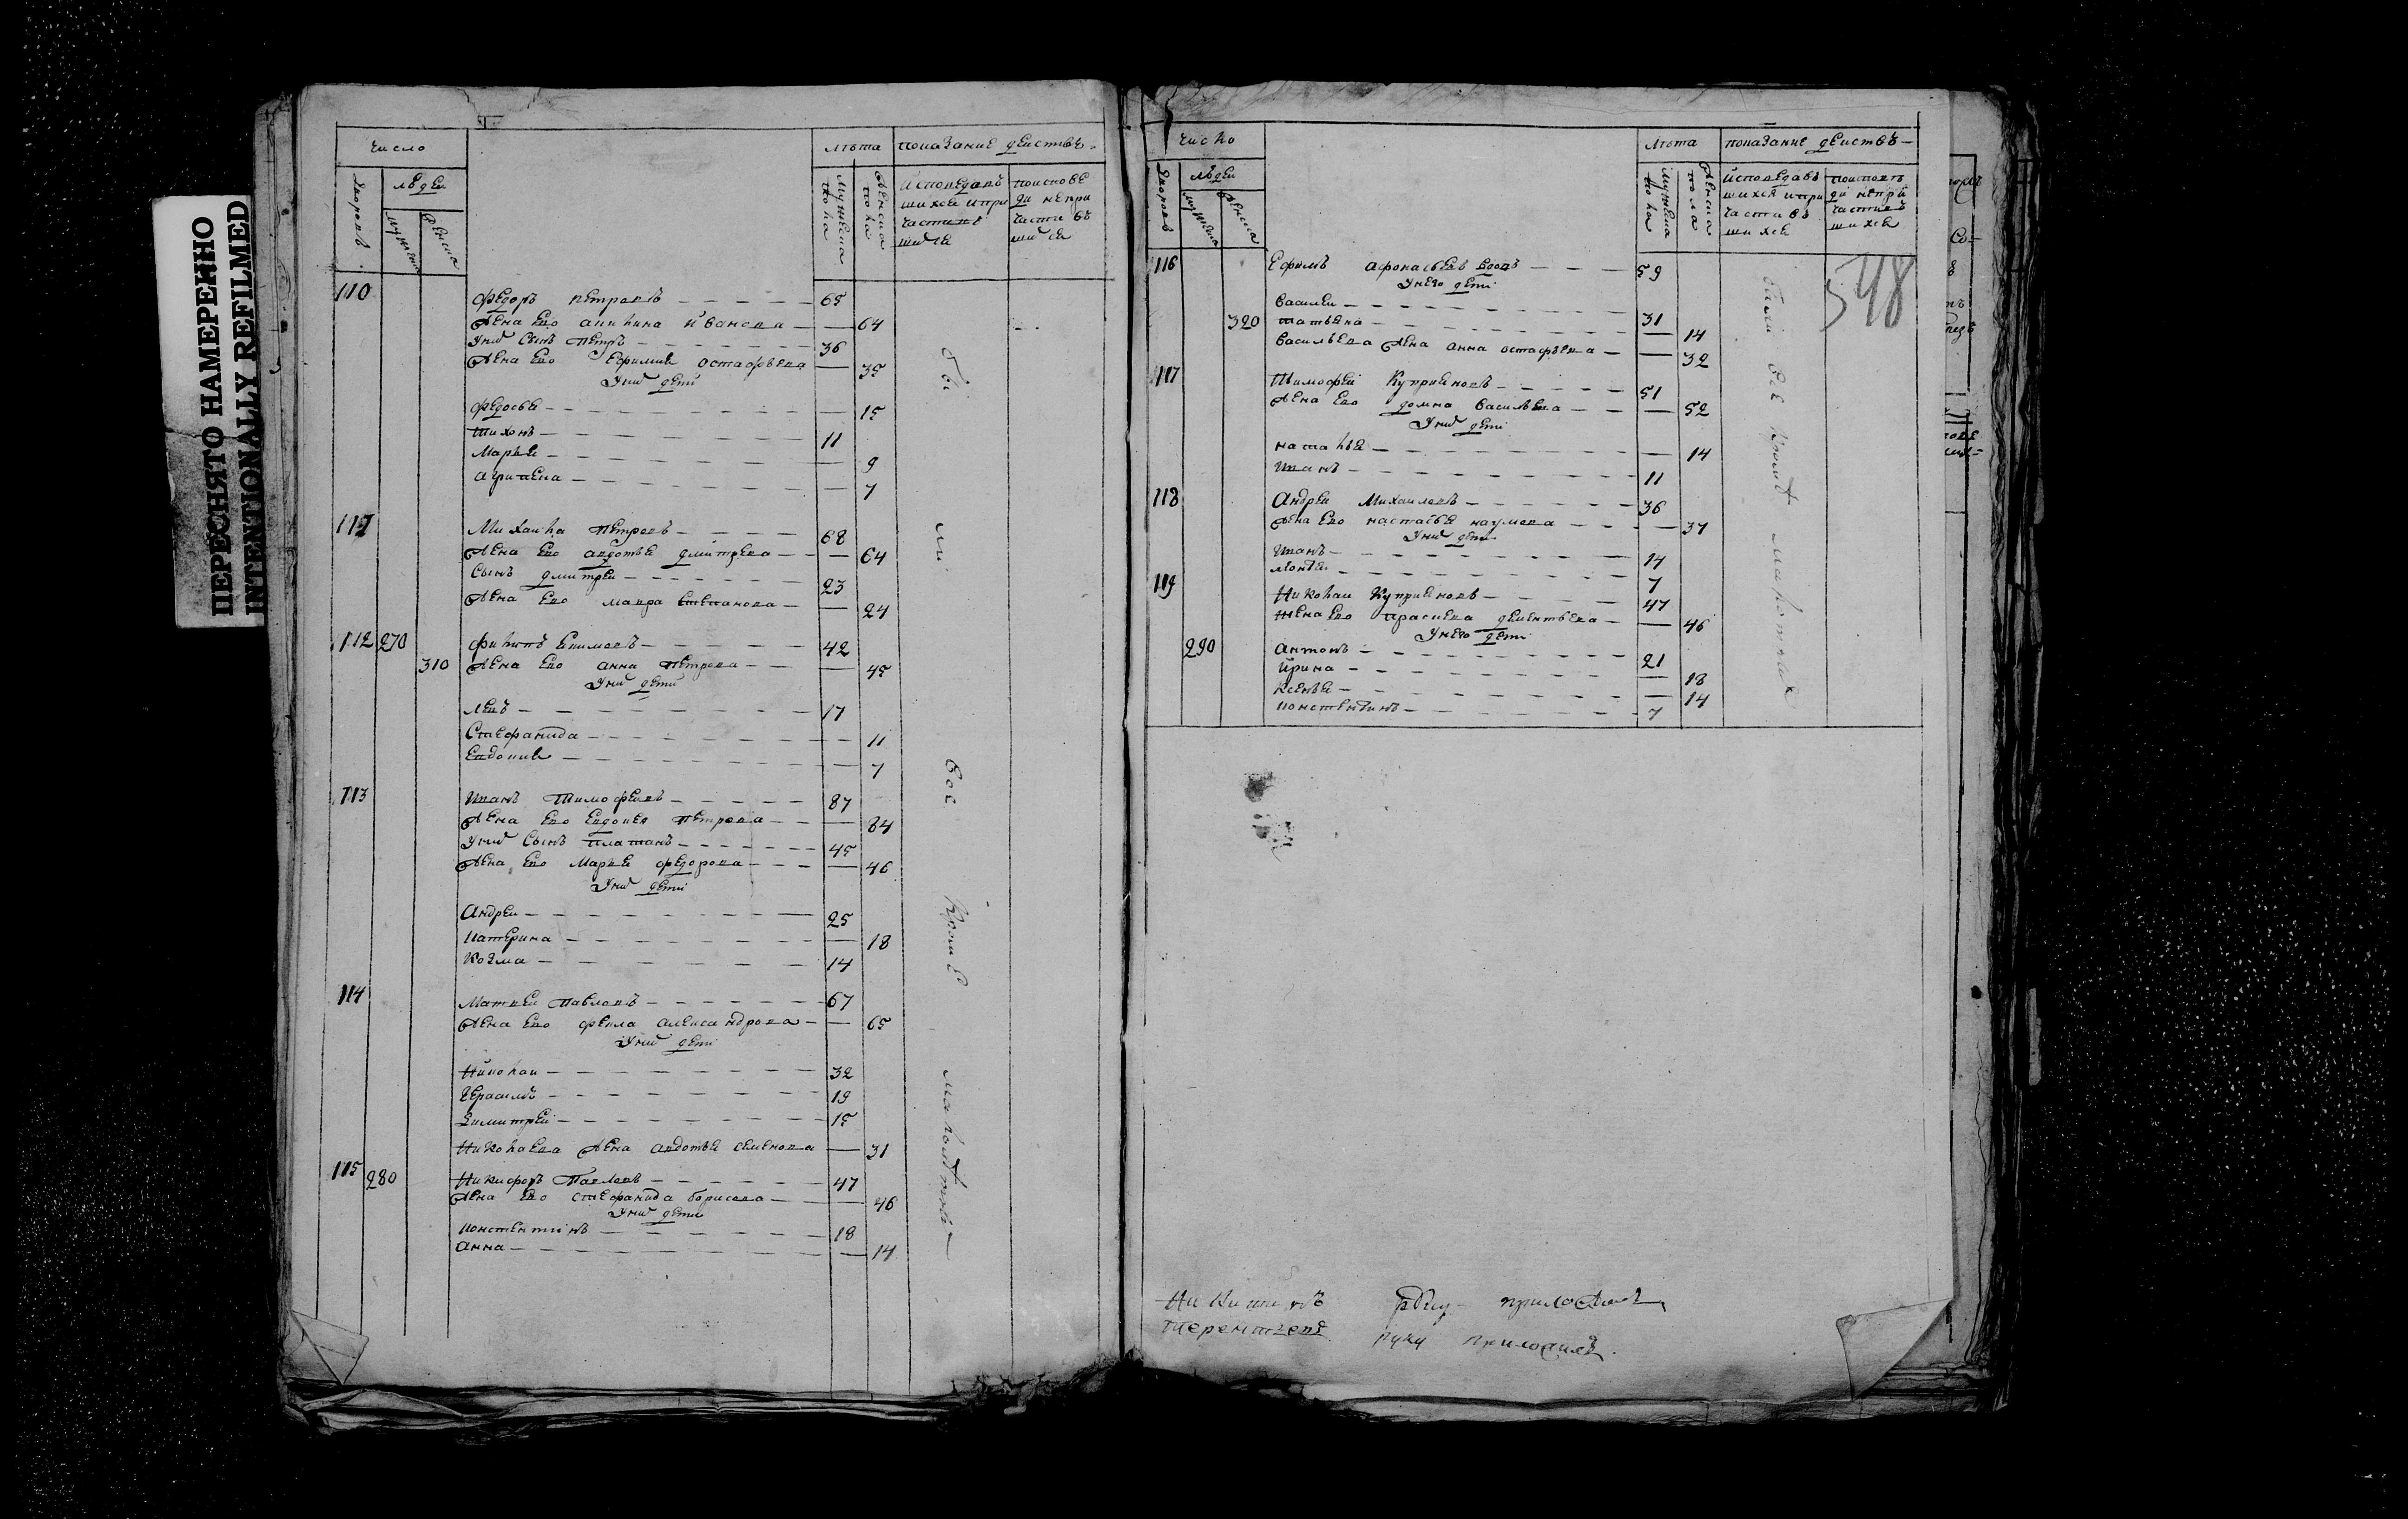 ПЕРЕСНЯТО НАМЕРЕННО
INTENTIONALLY REFILMED
число
лѣта
показание действъ
дворовъ
людеи
мужеска
женска
мужеска пола
женска пола
исповедавшихся и причастившихся
110
Федоръ петровъ 65
жена ево акилина ивановa 64
У них сынъ петръ 36
жена ево Ефимия остафьева 35
У них дети
Федосья 15
тихонъ 11
Марья 9
агрипена 7
111 Михаила петровъ 68
жена ево авдотья дмитрева 64
сынъ дмитреи 23
жена ево мавра степанова 24
112 270 филипъ Екимовъ 42
310 жена ево анна петрова 45
У них дети
левъ 17
Стефанида 11
Евдокия 7
113 иванъ тимофеевъ 87
жена ево Евдокея петрова 84
У них сынъ платонъ 45
жена ево Марья федорова 46
У них дети
Андреи 25
катерина 18
козма 14
114 Матвеи павловъ 67
жена ево фекла александрова 65
У них дети
николаи 32
Герасимъ 19
димитреи 15
николаева жена авдотья семенова 31
115 280 никифоръ павловъ 47
жена ево стефанида борисова 46
У них дети
констентинъ 18
анна 14
были все кроме малолетных
число
лѣта
показание действъ
дворовъ
людеи
мужеска
женска
мужеска пола
женска пола
исповедавшихся и причастившихся
548
116 Ефимъ афонасьевъ вдовъ 59
У него дети
василеи 31
320 татьяна 14
васильева жена анна остафьева 32
117 Тимофеи Куприяновъ 51
жена ево домна васильева 52
У них дети
наталья 14
иванъ 11
118 Андреи Михаиловъ 36
жена ево настасья наумова 37
У них дети
иванъ 14
леонтеи 7
119 николаи Куприяновъ 47
жена ево прасковa дементьева 46
У него дети
290 антонъ 21
ирина 18
ксенья 14
констентинъ 7
были все кроме малолетных
никитинъ руку приложилъ
терентиевъ руку приложилъ